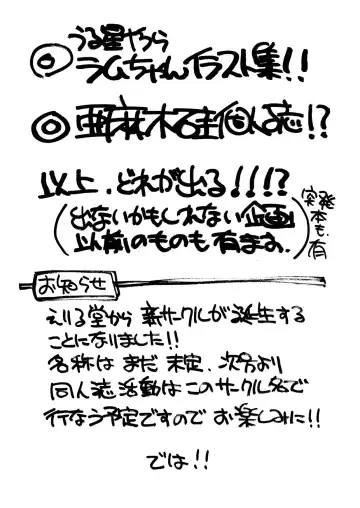 ◎うる星やつら
ラムちゃんイラスト集!!
◎亜麻木硅個人誌!?
以上、どれが出る!!!?
(出ないかもしれない企画
以前のものも有ます。)
実発本も、有
お知らせ
えりる堂から 新サークルが誕生する
ことになりました!!
名称は まだ 未定、次号より
同人誌活動は このサークル名で
行なう予定ですので お楽しみに!!
では!!